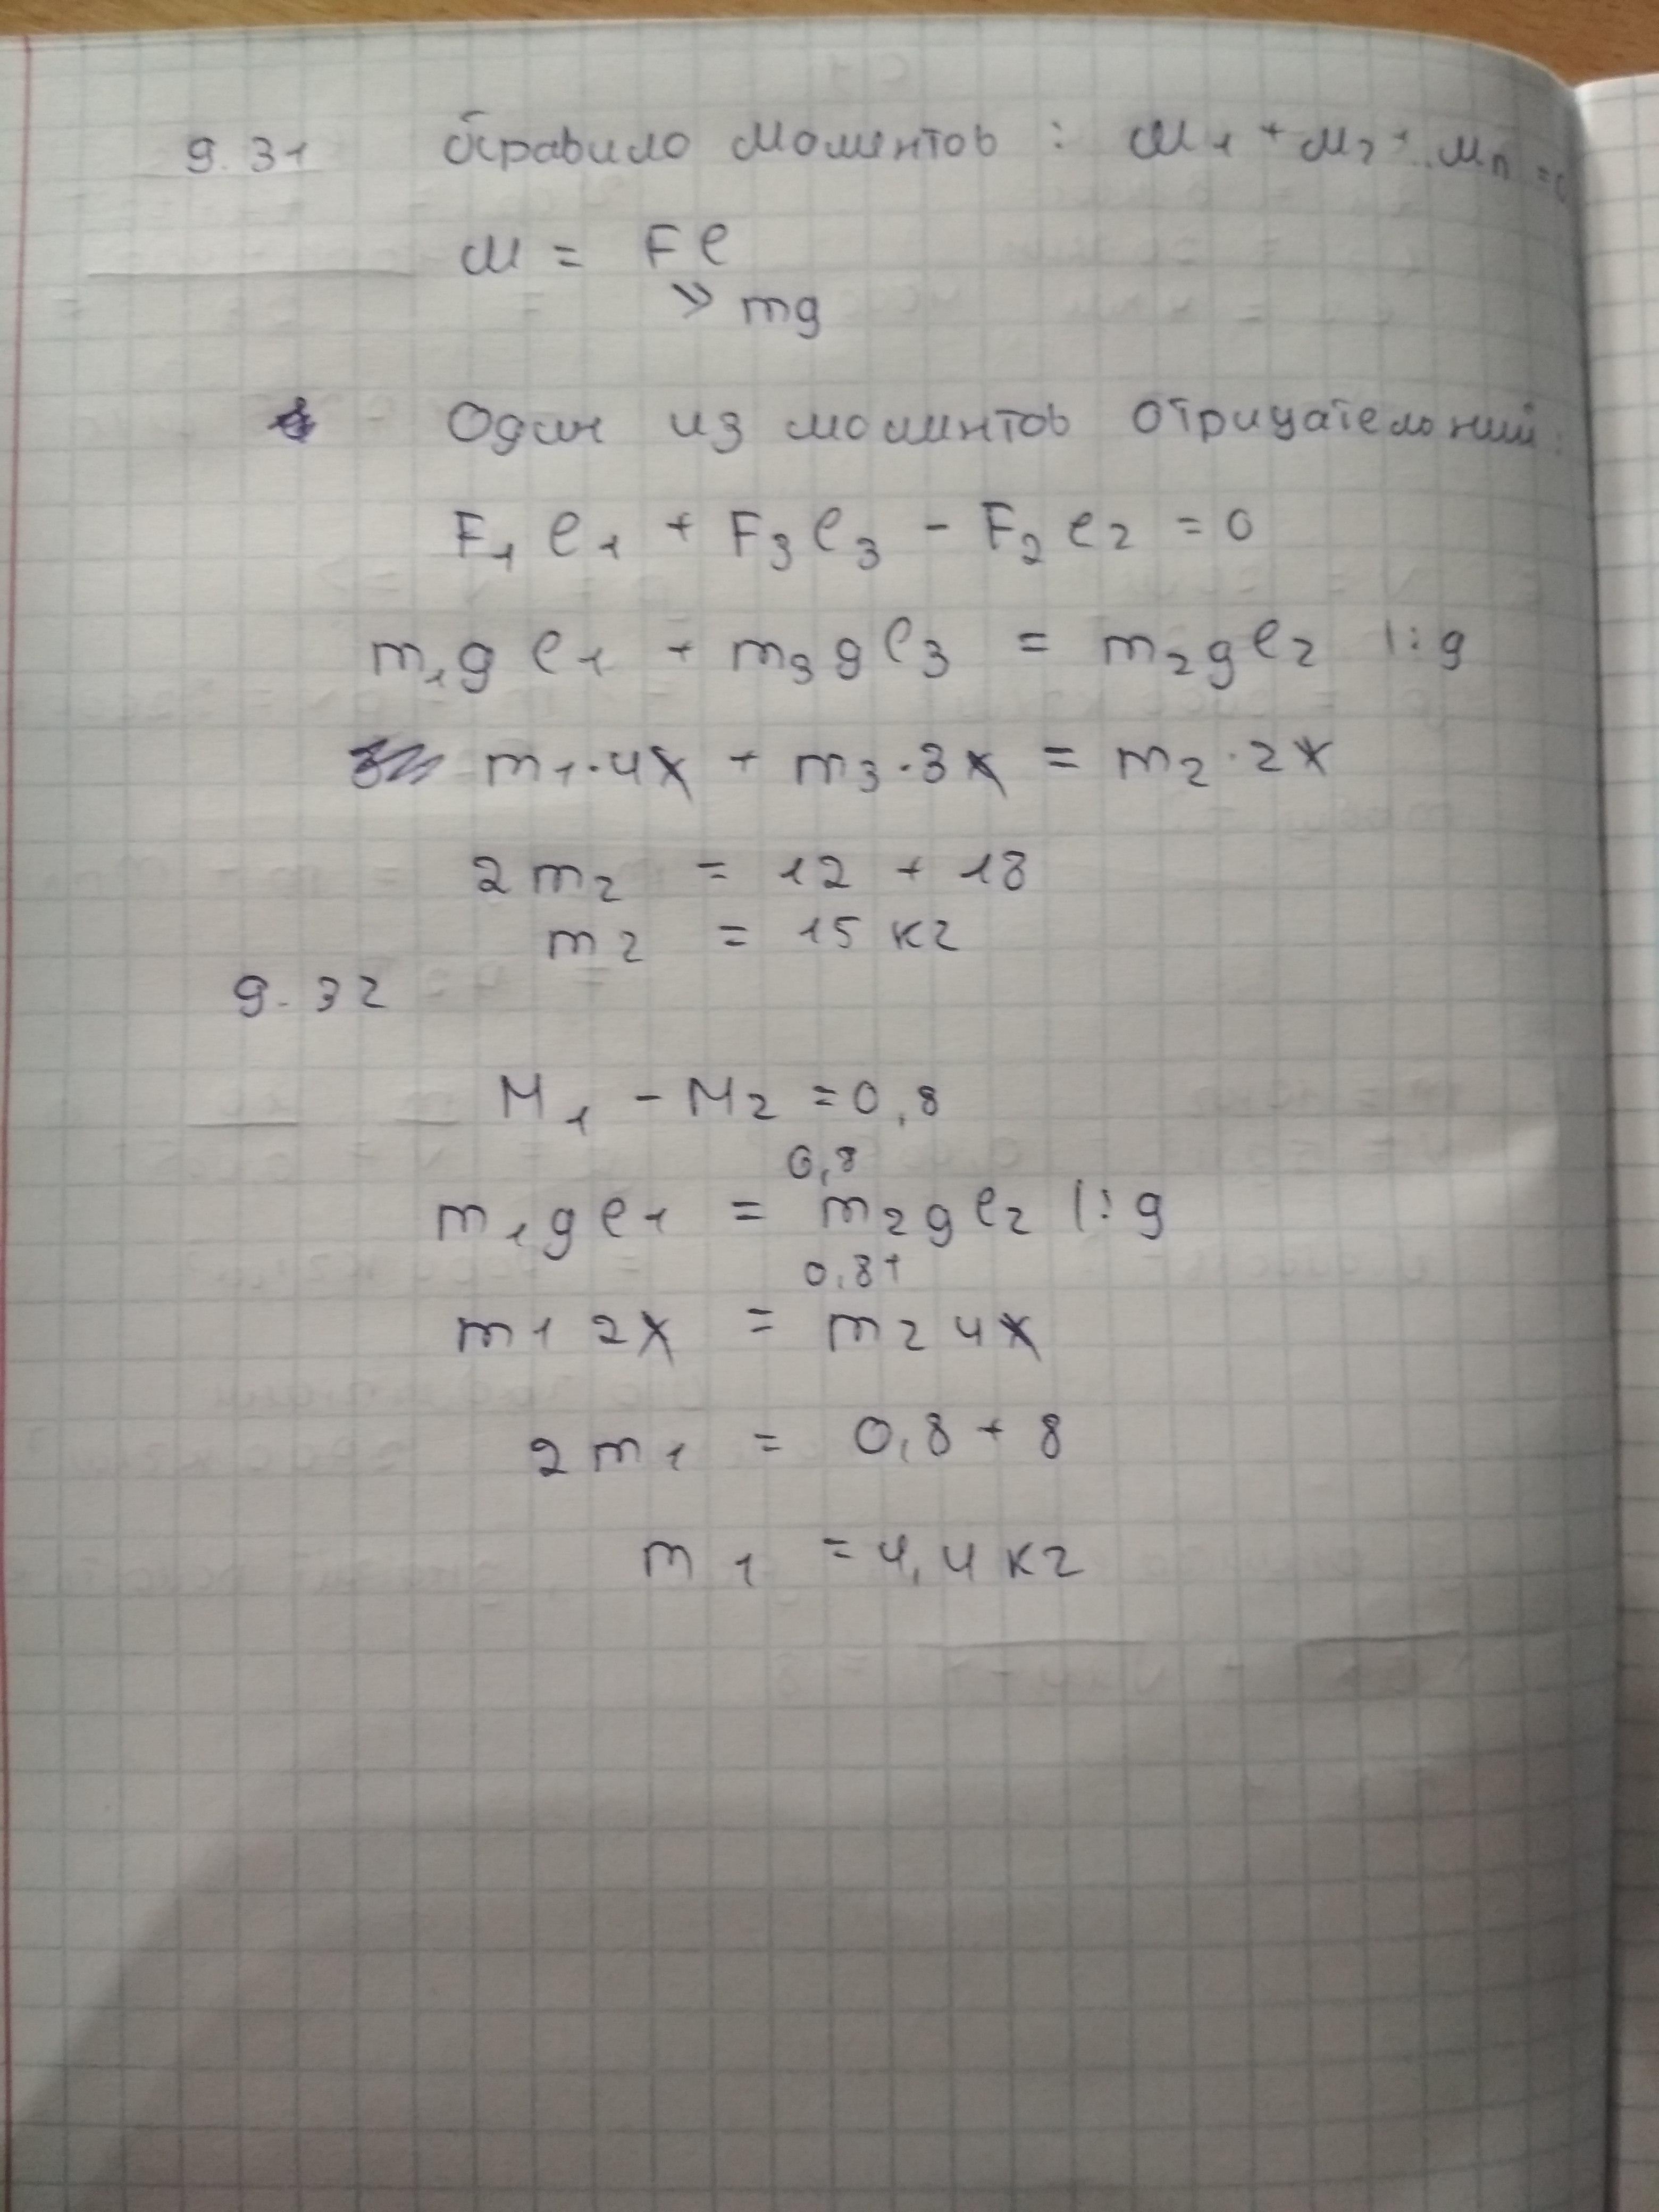 9.31 Правило моментов : M₁ + M₂ + .. Mn = 0
M = Fl
mg
Один из моментов отрицательний :
F₁ l₁ + F₃ l₃ - F₂ l₂ = 0
m₁g l₁ + m₃ g l₃ = m₂ g l₂ |: g
m₁ · 4x + m₃ · 3x = m₂ · 2x
2 m₂ = 12 + 18
m₂ = 15 кг
9. 32
M₁ - M₂ = 0,8
0,8
m₁ g l₁ = m₂ g l₂ |: g
0,8+
m₁ 2x = m₂ 4x
2 m₁ = 0,8 + 8
m₁ = 4,4 кг